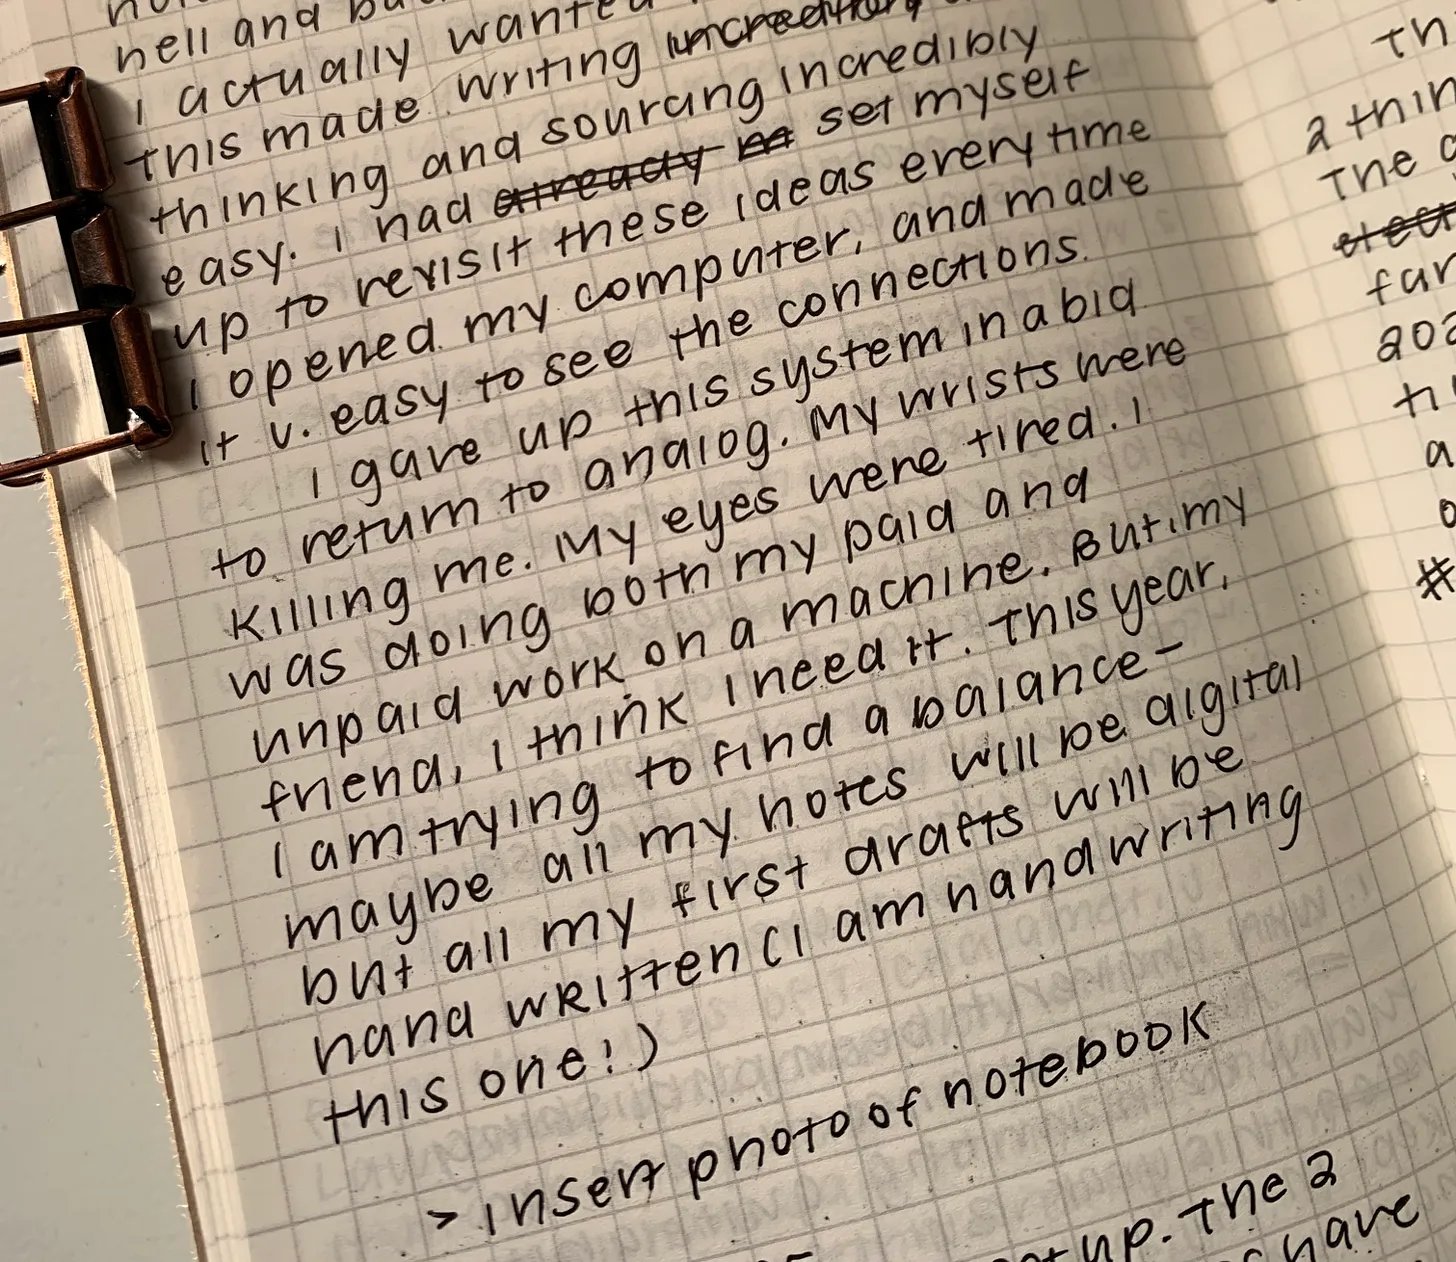 hell and
I actually wanted
this made writing
thinking and sourcing incredibly
easy. I had already set myself
up to revisit these ideas every time
I opened my computer, and made
it v. easy to see the connections.
I gave up this system in a bid
to return to analog. My wrists were
killing me. My eyes were tired. I
was doing both my paid and
unpaid work on a machine. But, my
friend, I think I need it. This year,
I am trying to find a balance –
maybe all my notes will be digital
but all my first drafts will be
hand written (I am handwriting
this one!)
> insert photo of notebook
up. The 2
have
th
2 thin
The
far
202
a
#